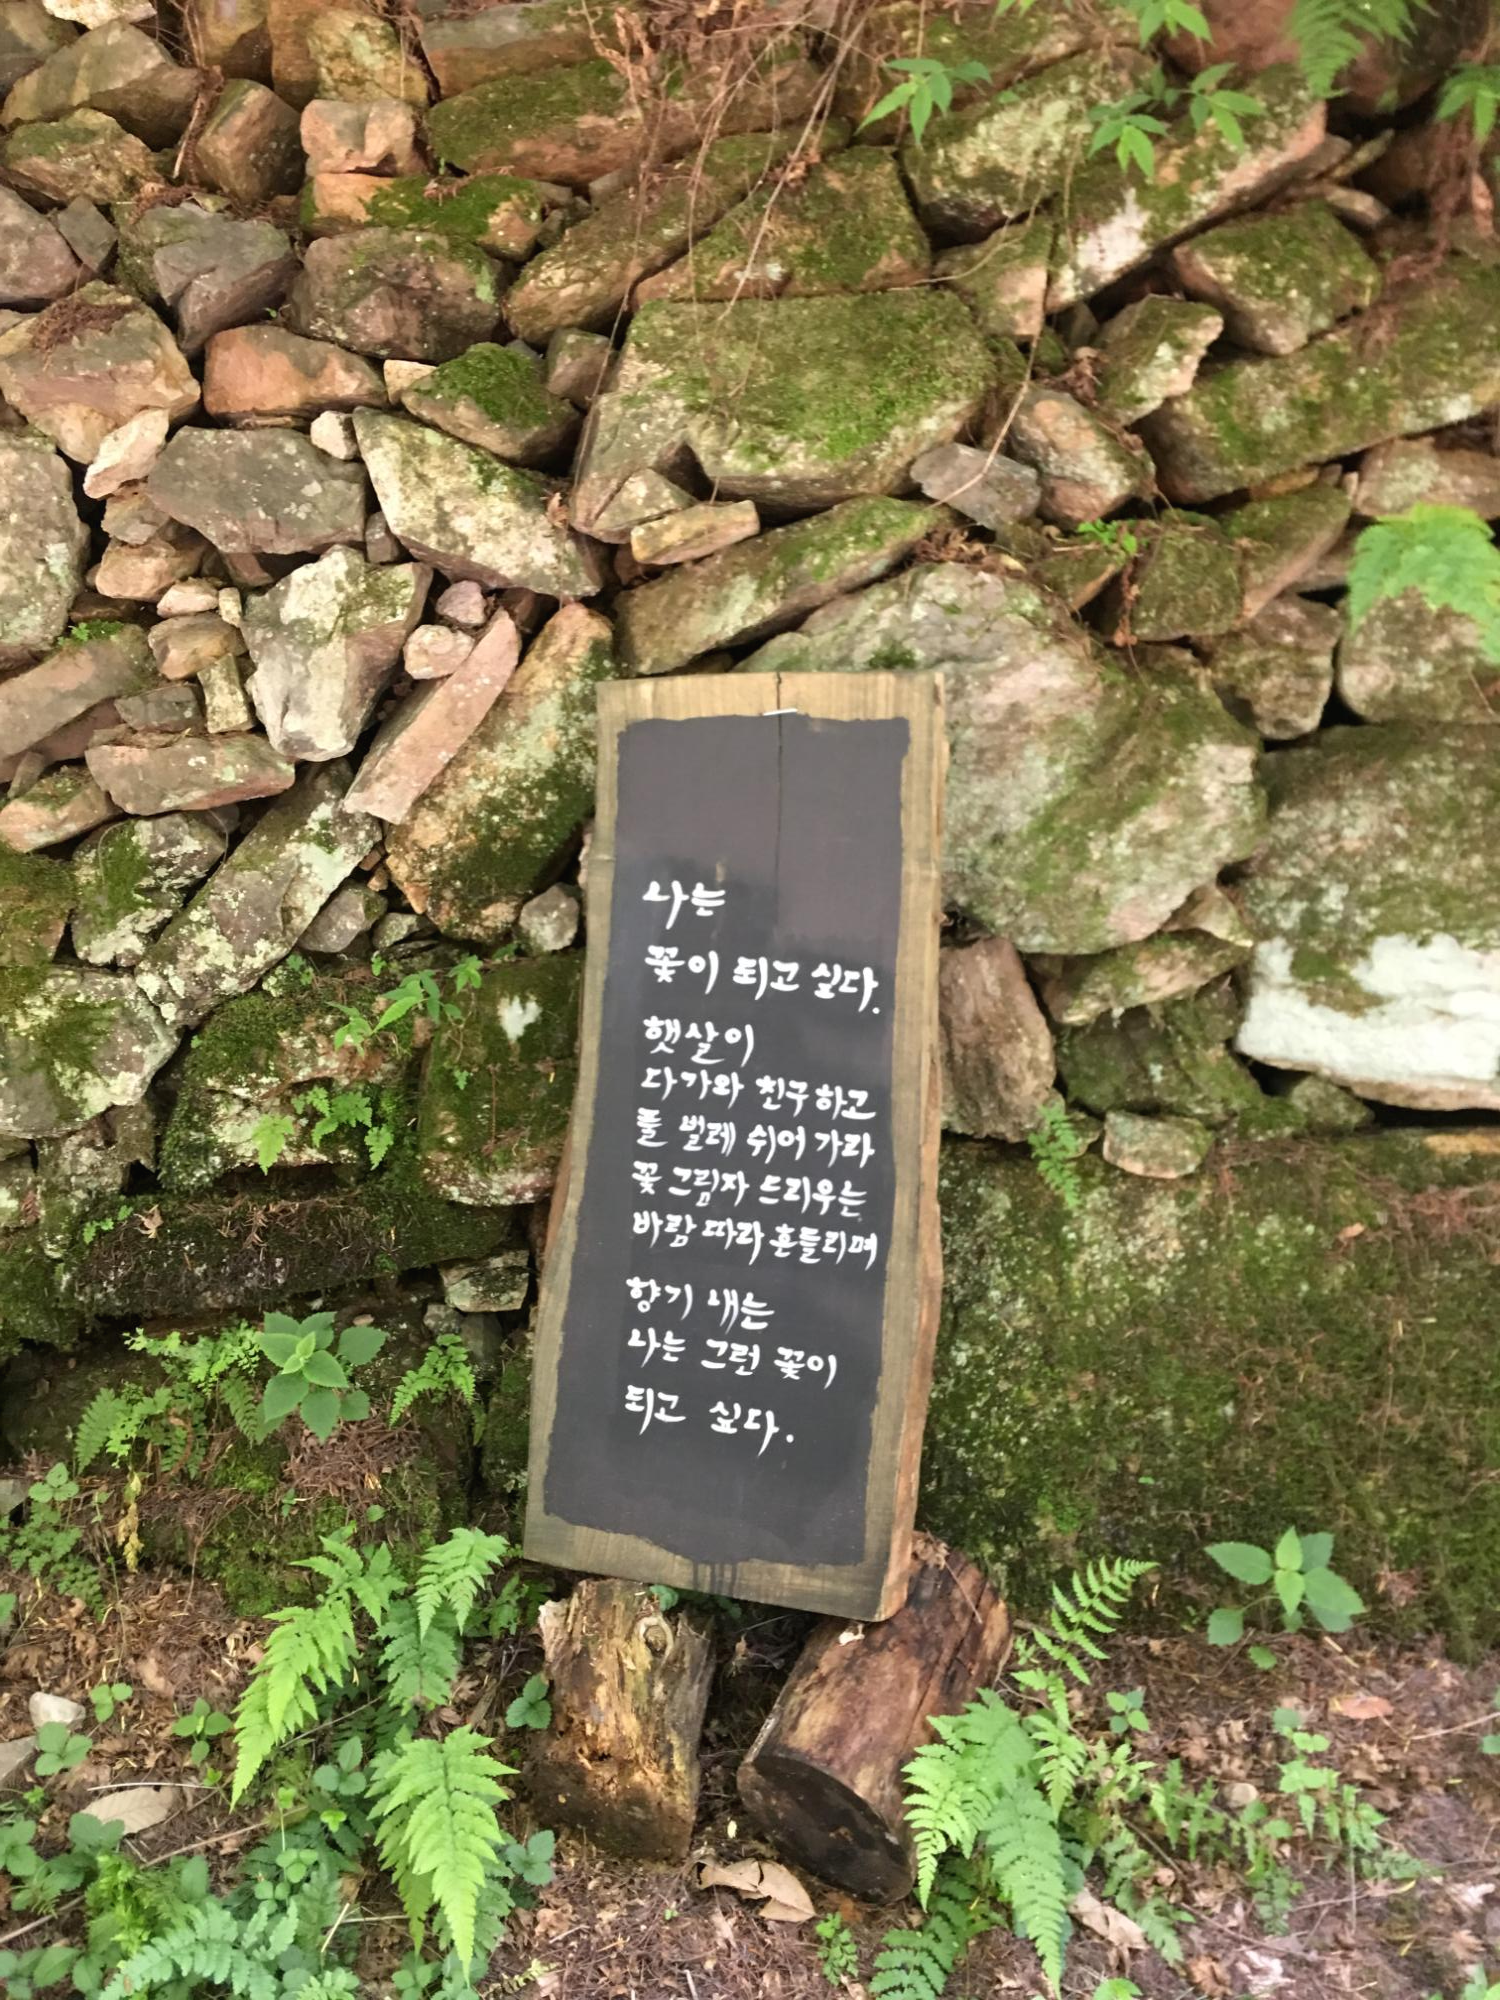 나는
꽃이 되고 싶다.
햇살이
다가와 친구하고
풀 벌레 쉬어 가라
꽃 그림자 드리우는
바람 따라 흔들리며
향기 내는
나는 그런 꽃이
되고 싶다.